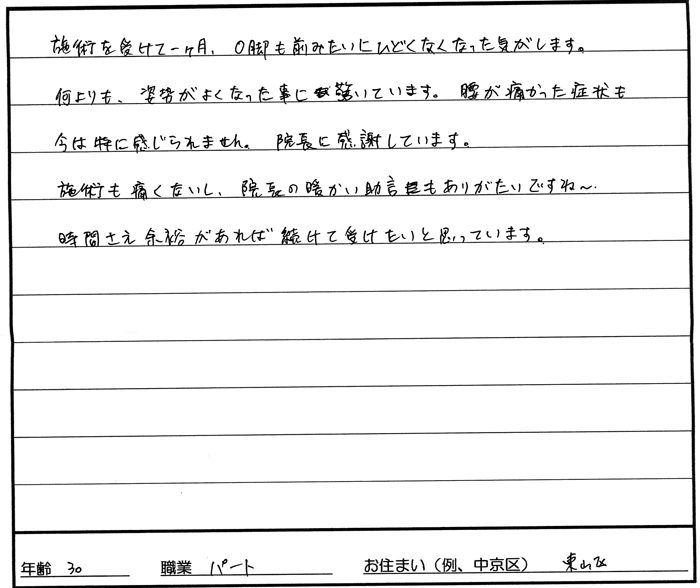 施術を受けて一ヶ月、O脚も前みたいにひどくなくなった気がします。
何よりも、姿勢がよくなった事に驚いています。腰が痛かった症状も
今は特に感じられません。院長に感謝しています。
施術も痛くないし、院長の暖かい助言もありがたいですね〜.
時間さえ余裕があれば続けて受けたいと思っています。
年齢 30 職業 パート お住まい（例、中京区） 東山区